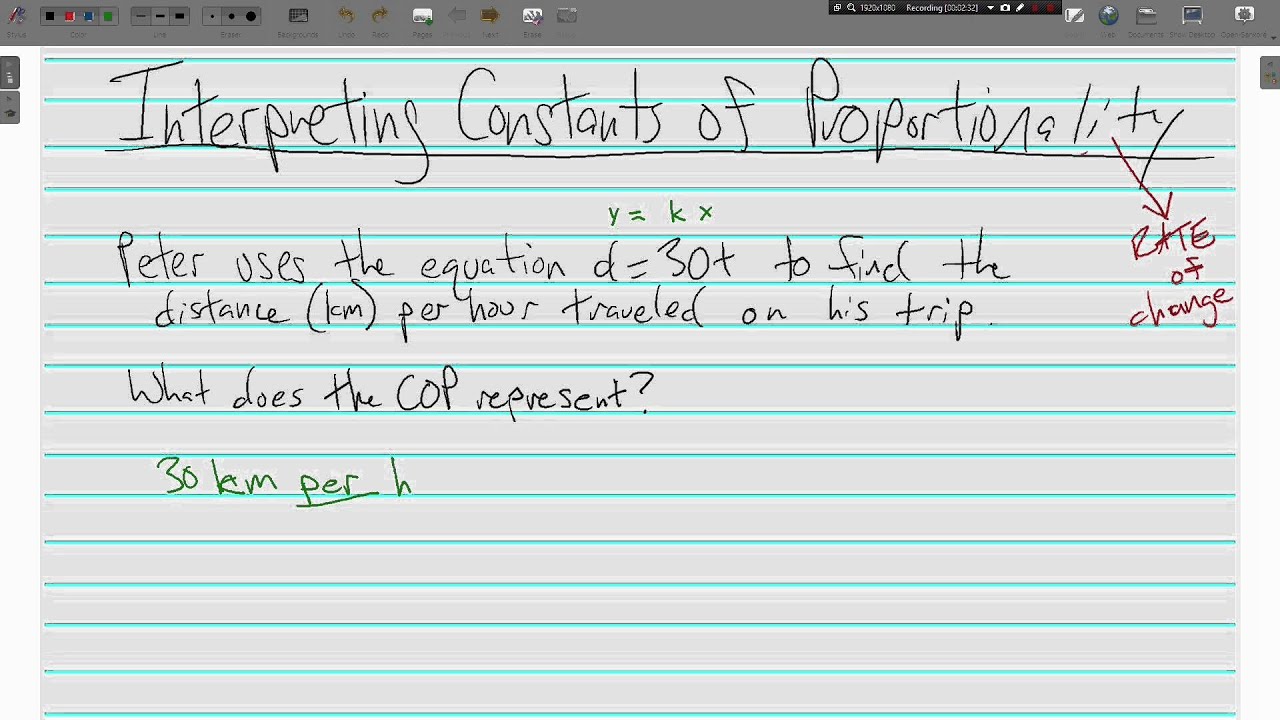 1920x1080 Recording [00:02:32]
Stylus Color Line Eraser Backgrounds Undo Redo Pages Previous Next Erase Web Documents Show Desktop Open-Sankoré
Interpreting Constants of Proportionality
y = k x
RATE
of
change
Peter uses the equation d = 30t to find the
distance (km) per hour traveled on his trip.
What does the COP represent?
30 km per h